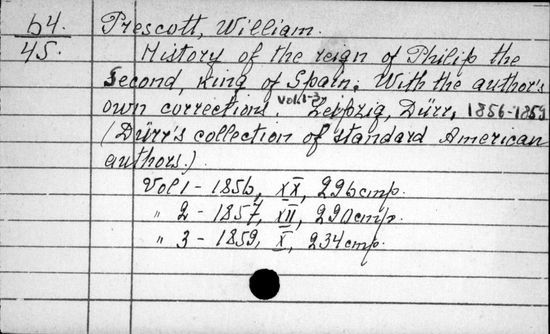 64. Prescott, William.
45. History of the reign of Philip the
Second, king of Spain. With the author's
own corrections. Vol. 1-3. Leipzig, Dürr, 1856-1859
(Dürr's collection of standard American
authors.)
Vol 1 - 1856, XX, 296 cmp.
" 2 - 1857, XII, 290 cmp.
" 3 - 1859, X, 234 cmp.